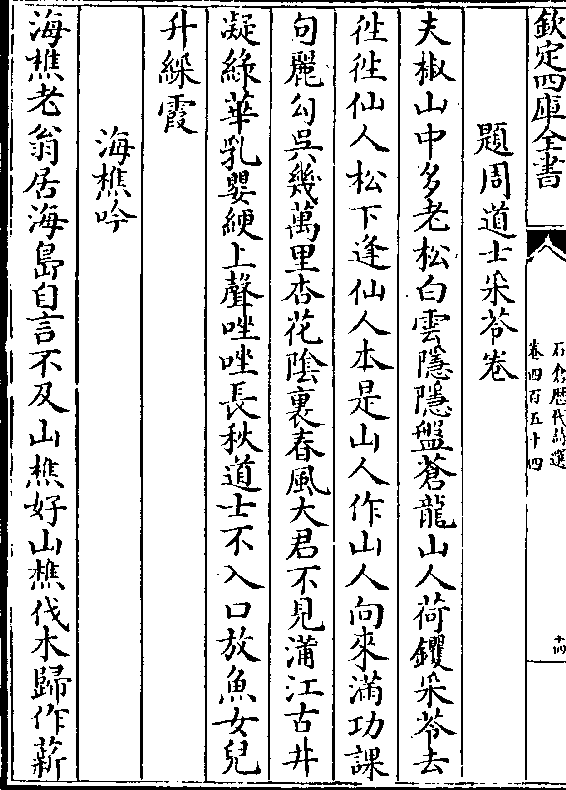 欽定四庫全書
石倉歴代詩選
卷四百五十四
十四
題周道士采苓卷
夫椒山中多老松白雲隱隱盤蒼龍山人荷钁采苓去
徃徃仙人松下逢仙人本是山人作山人向來滿功課
句麗勾吳幾萬里杏花陰裏春風大君不見蒲江古井
凝綠華乳嬰綆上聲唑唑長秋道士不入口放魚女兒
升綵霞
海樵吟
海樵老翁居海島自言不及山樵好山樵伐木歸作薪